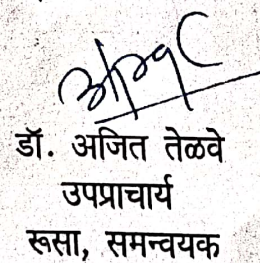 डॉ. अजित तेळवे
उपप्राचार्य
रूसा, समन्वयक